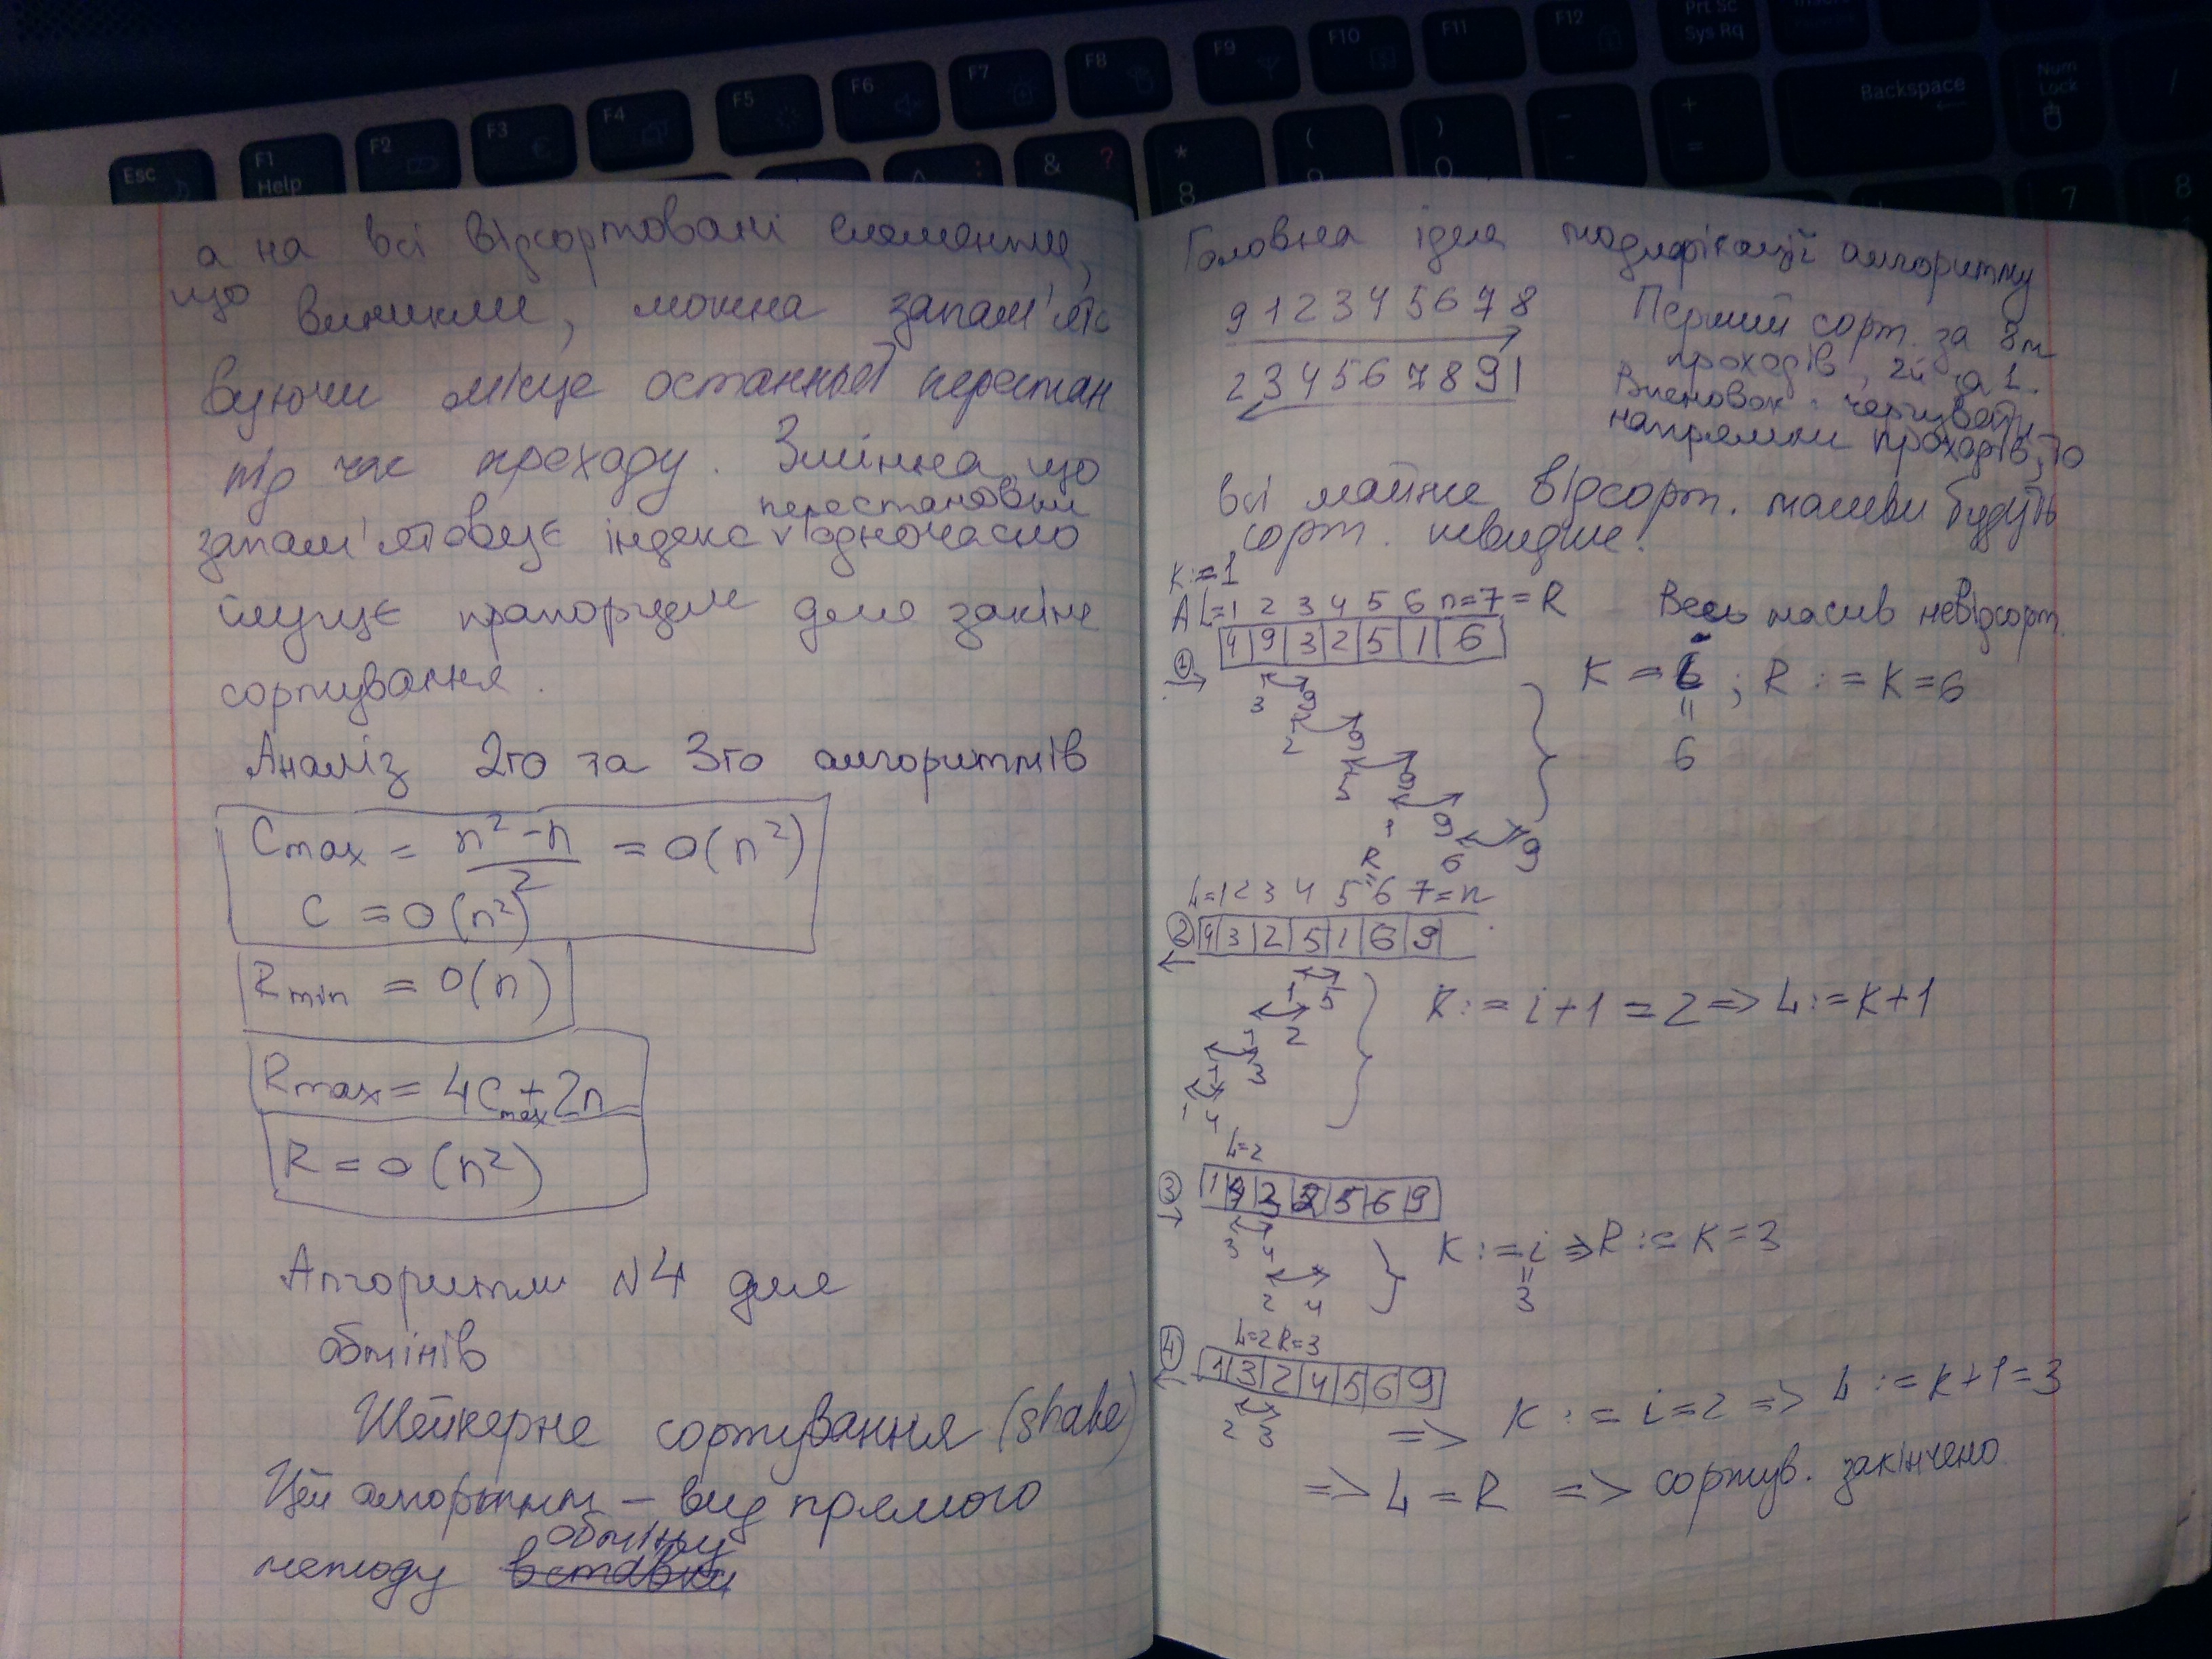 Esc
F1
Help
F2
F3
F4
F5
F6
F7
F8
F9
F10
F11
F12
Prt Sc
Sys Rq
Backspace
Num
Lock
а на всі відсортовані елементи,
що виникли, можна запам'ято
вуючи місце останньої перестан
під час проходу. Змінна що
запам'ятовує індекс перестановки одночасно
слугує прапорцем для закінч
сортування.
Аналіз 2го та 3го алгоритмів
Cmax = (n² - n)/2 = O(n²)
C = O(n²)
Rmin = O(n)
Rmax = 4Cmax + 2n
R = O(n²)
Алгоритм N4 для
обмінів
Шейкерне сортування (shake)
Цей алгоритм – вид прямого
методу обміну
Головна ідея модифікації алгоритму
9 1 2 3 4 5 6 7 8
2 3 4 5 6 7 8 9 1
Перший сорт. за 8м
проходів, 2й за 1.
Висновок: чергувати
напрямки проходів, то
всі майже відсорт. масиви будуть
сорт. швидше!
K:=1
A L=1 2 3 4 5 6 n=7=R
4 9 3 2 5 1 6
Весь масив невідсорт.
① →
3 9
2 9
5 9
1 9
6 9
K = i ; R := K = 6
=
6
R
=
L=1 2 3 4 5 6 7=n
② 4 3 2 5 1 6 9
←
1 5
1 2
1 3
1 4
K := i+1 = 2 => L := K+1
L=2
③ 1 4 3 2 5 6 9
→
3 4
2 4
K := i => R := K = 3
=
3
L=2 R=3
④ 1 3 2 4 5 6 9
←
2 3
=> K := i = 2 => L := K+1 = 3
=> L = R => сортув. закінчено